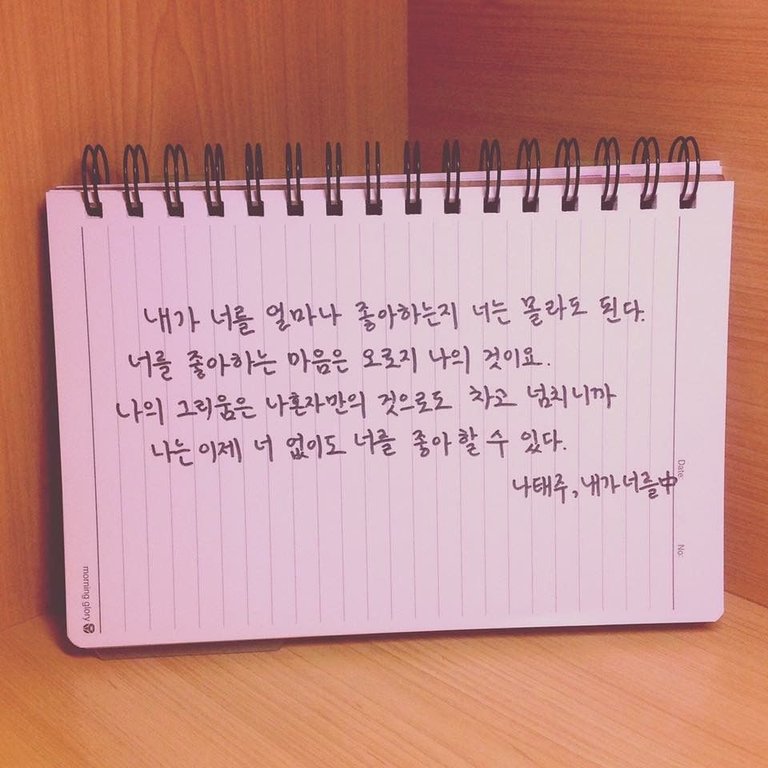 내가 너를 얼마나 좋아하는지 너는 몰라도 된다.
너를 좋아하는 마음은 오로지 나의 것이요.
나의 그리움은 나혼자만의 것으로도 차고 넘치니까
나는 이제 너 없이도 너를 좋아할 수 있다.
나태주, 내가 너를 中
Date
No:
morning glory